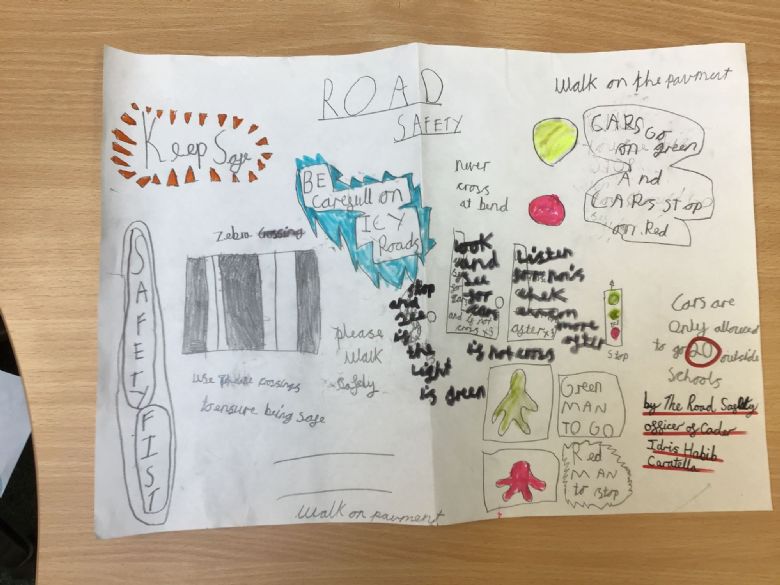 ROAD
SAFETY
Walk on the pavment
Keep Safe
CARS Go
on green
And
CARs stop
on Red
never
cross
at bend
BE
Carefull on
ICY
Roads
Zebra Crossing
SAFETY
FIST
look
and
see
for
cars
Listen
stop
and
see
is
the
light
is green
is not cross
more
after
Stop
please
Walk
safely
use these crossings
to ensure being safe
Cars are
Only allowed
to go 20 outside
Schools
Green
MAN
TO GO
Red
MAN
to stop
by The Road Safety
officer of Cader
Idris Habib
Caratella
Walk on pavment